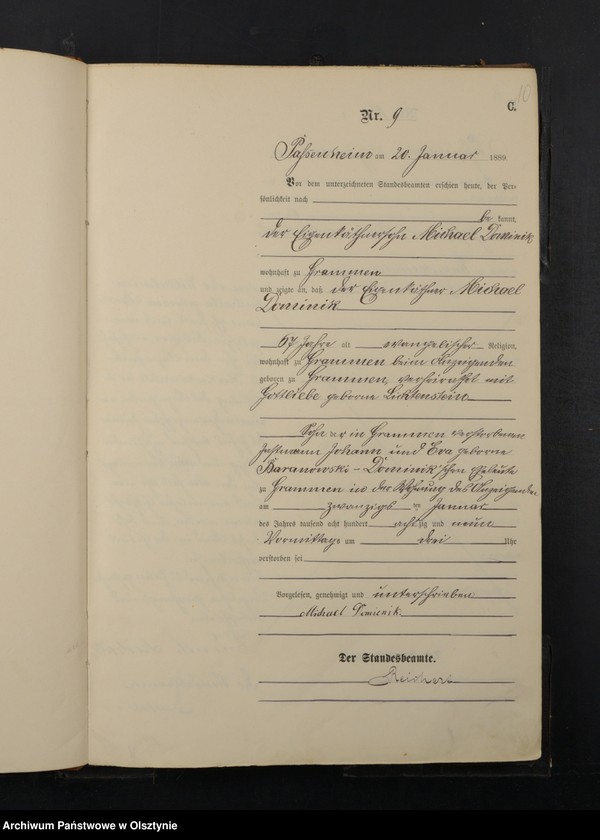 10
C.
Nr. 9
Passenheim am 20. Januar 1889
Vor dem unterzeichneten Standesbeamten erschien heute, der Per-
sönlichkeit nach
be kannt,
der Eigenkäthnersohn Michael Dominik
wohnhaft zu Grammen
und zeigte an, daß der Eigenkäthner Michael
Dominik
67 Jahre alt evangelischer Religion,
wohnhaft zu Grammen beim Anzeigenden
geboren zu Grammen, verheirathet mit
Gottliebe geborne Lichtenstein
Sohn der in Grammen verstorbenen
Johann und Eva geborne
Baranowski - Dominik'schen Eheleute
zu Grammen in der Wohnung des Anzeigenden
am zwanzigs ten Januar
des Jahres tausend acht hundert acht zig und neun
Vormittags um drei Uhr
verstorben sei
Vorgelesen, genehmigt und unterschrieben
Michael Domienik
Der Standesbeamte.
Reichert
Archiwum Państwowe w Olsztynie